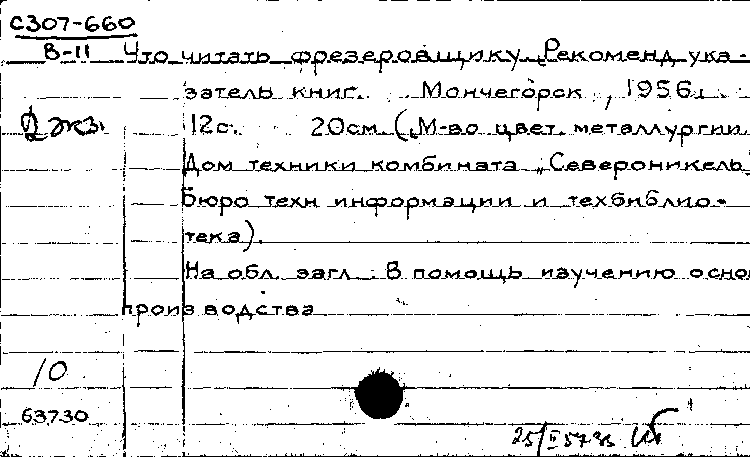 С307-660
В-11 Что читать фрезеровщику. Рекоменд ука-
затель книг. Мончегорск, 1956.
2 экз. 12с. 20см. (М-во цвет. металлургии.
Дом техники комбината „Североникель"
Бюро техн информации и техбиблио-
тека).
На обл. загл. В помощь изучению осно
производства
10
63730
25/II 57